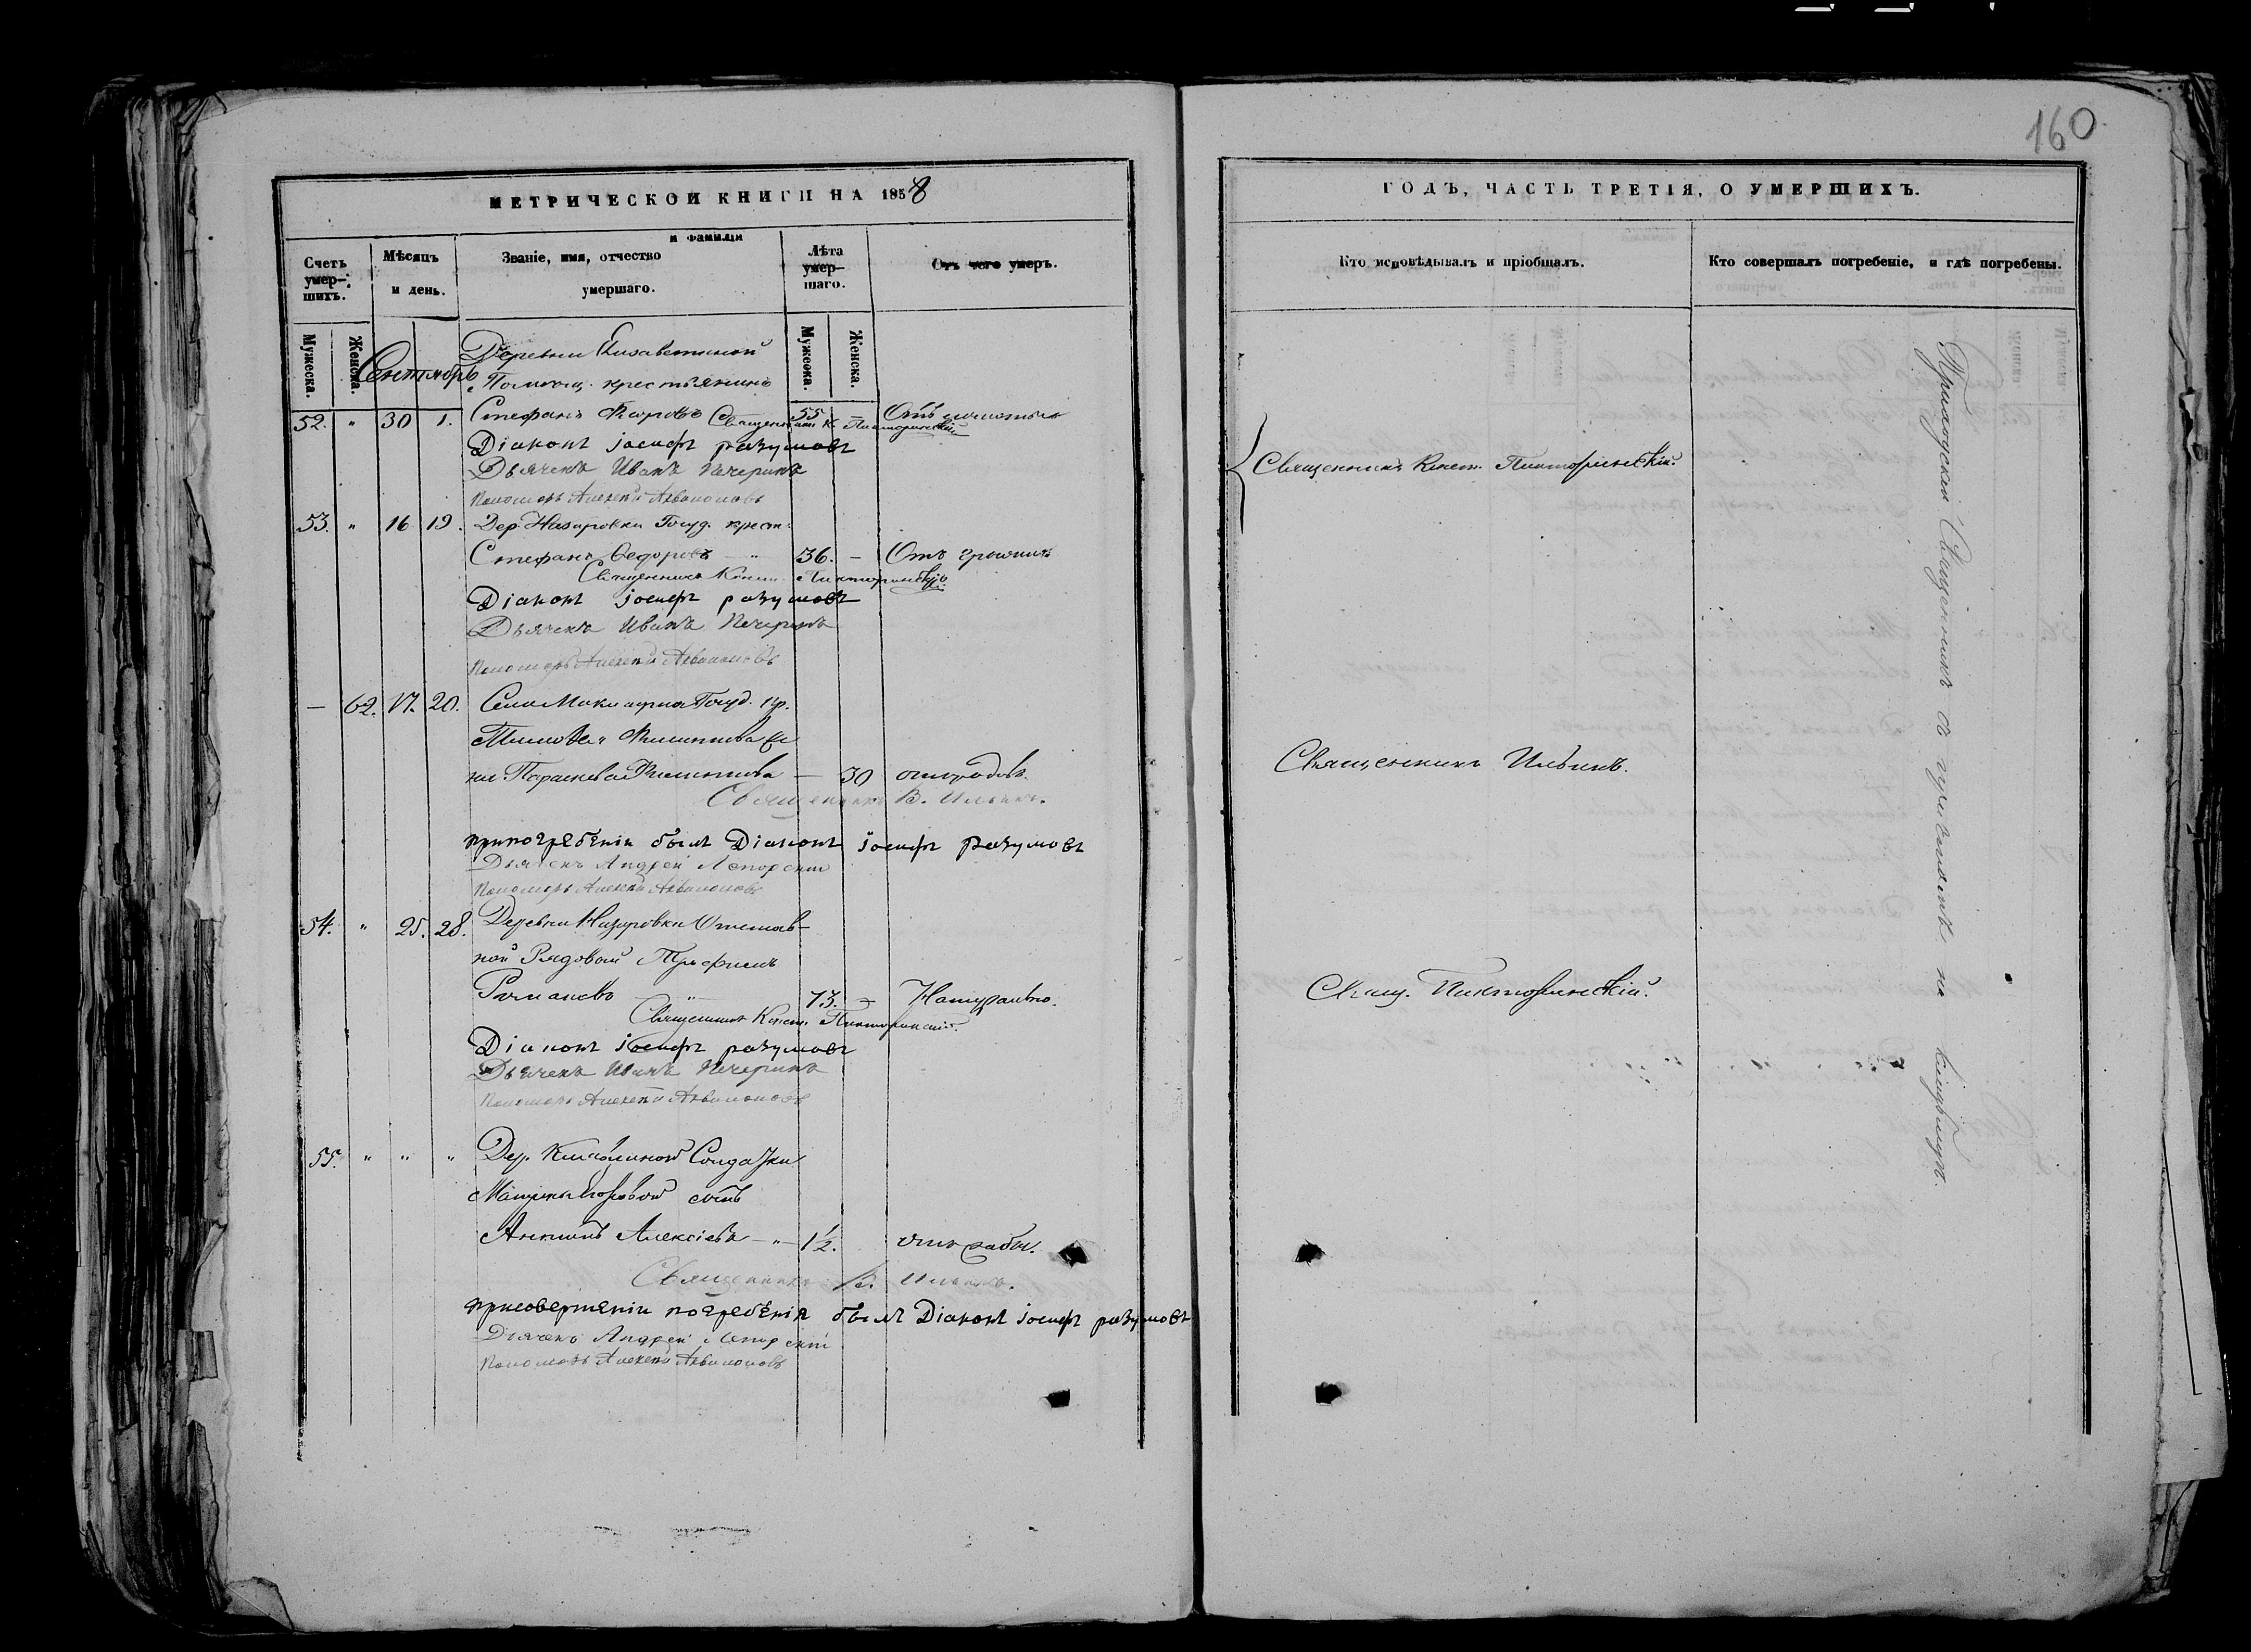 160
МЕТРИЧЕСКОЙ КНИГИ НА 1858
Счетъ умершихъ.
Мѣсяцъ и день.
Званіе, имя, отчество и фамилія умершаго.
Лѣта умершаго.
Отъ чего умеръ.
Мужеска. Женска.
Мужеска. Женска.
Сентябрь
Деревни Елизаветиной
Помѣщ. крестьянинъ
52. " 30 1. Стефанъ 55 –
Священникъ К. Пикторинскій
Діаконъ іосифъ разумовъ
Дьячекъ Иванъ Печеринъ
Пономарь Алексѣй
53. " 16 19. Дер. Назаровки Госуд. крест.
Стефанъ Ѳедоровъ – " 36. – Отъ
Священникъ Конст. Пикторинскій
Діаконъ іосифъ разумовъ
Дьячекъ Иванъ Печеринъ
Пономарь Алексѣй
– 62. 17. 20. Села Госуд. кр.
Филиппова
Параскева Филиппова – 30 отъ родовъ.
Священникъ В. Ильинъ.
припогребеніи былъ Діаконъ іосифъ разумовъ
Дьячекъ Андрей
Пономарь Алексѣй
54. " 25. 28. Деревни Назаровки Отстав-
ной Рядовой Трофимъ
Романовъ – " – 73. – Натурально.
Священникъ Конст. Пикторинскій.
Діаконъ іосифъ разумовъ
Дьячекъ Иванъ Печеринъ
Пономарь Алексѣй
55. " " " Дер. Солдатки
сынъ
Антипъ Алексіевъ – " – 1½.
Священникъ В. Ильинъ.
присовершеніи погребенія былъ Діаконъ іосифъ разумовъ
Дьячекъ Андрей
Пономарь Алексѣй
ГОДЪ, ЧАСТЬ ТРЕТІЯ, О УМЕРШИХЪ.
Кто исповѣдывалъ и пріобщалъ.
Кто совершалъ погребеніе, и гдѣ погребены.
Священникъ Конст. Пикторинскій.
Священникъ Ильинъ.
Свящ. Пикторинскій.
Приходскій Священникъ съ причтомъ на кладбищѣ.